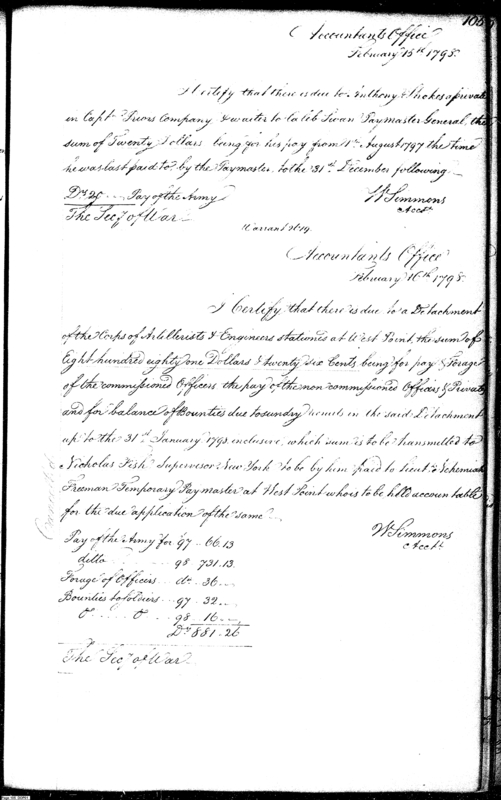 Accountants Office
February 15th 1798.
I certify that there is due to Anthony Shokes a private
in Capt. Friors Company & waiter to Caleb Swan Paymaster General, the
sum of Twenty Dollars being for his pay from 1st August 1797 the time
he was last paid to by the Paymaster, to the 31st December following
Drs 20 Pay of the Army
Wm Simmons
Acct.
The Secy of War
Warrant No
Accountants Office
February 16th 1798.
I Certify that there is due to a Detachment
of the Corps of Artillerists & Engineers stationed at West Point, the sum of
Eight hundred eighty one Dollars & twenty six Cents, being for pay & Forage
of the commissioned Officers the pay of the non commissioned Officers & Privates
and for balance of Bounties due to sundry in the said Detachment
up to the 31st January 1798 inclusive, which sum is to be transmitted to
Nicholas Fish Supervisor New York to be by him paid to Lieut Nehemiah
Freeman Temporary Paymaster at West Point who is to be held accountable
for the due application of the same
Wm Simmons
Acct.
Pay of the Army for 97 .. 66.13
ditto 98 731.13
Forage of Officers do 36
Bounties to Soldiers 97 .. 32
Do Do 98 16
Drs 881.26
The Secy of War